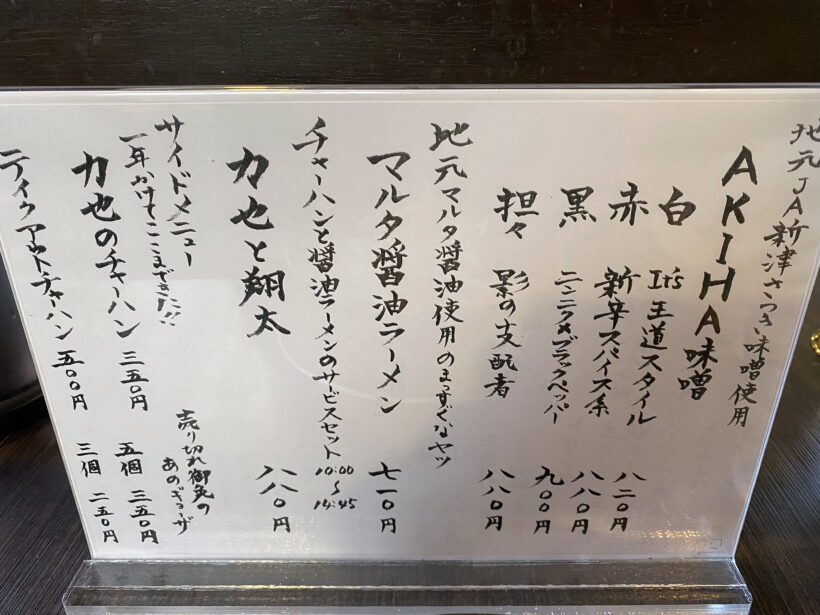 地元JA新津さつき味噌使用
AKIHA味噌
白 It's 王道スタイル 八二〇円
赤 新辛スパイス系 八八〇円
黒 ニンニク×ブラックペッパー 九〇〇円
担々 影の支配者 八八〇円
地元マルタ醤油使用のまっすぐなヤツ
マルタ醤油ラーメン 七一〇円
チャーハンと醤油ラーメンのサービスセット 10:00〜14:45
力也と翔太 八八〇円
サイドメニュー
一年かけてここまできた!!
力也のチャーハン 三五〇円
テイクアウトチャーハン 五〇〇円
売り切れ御免の
あのギョーザ
五個 三五〇円
三個 二五〇円